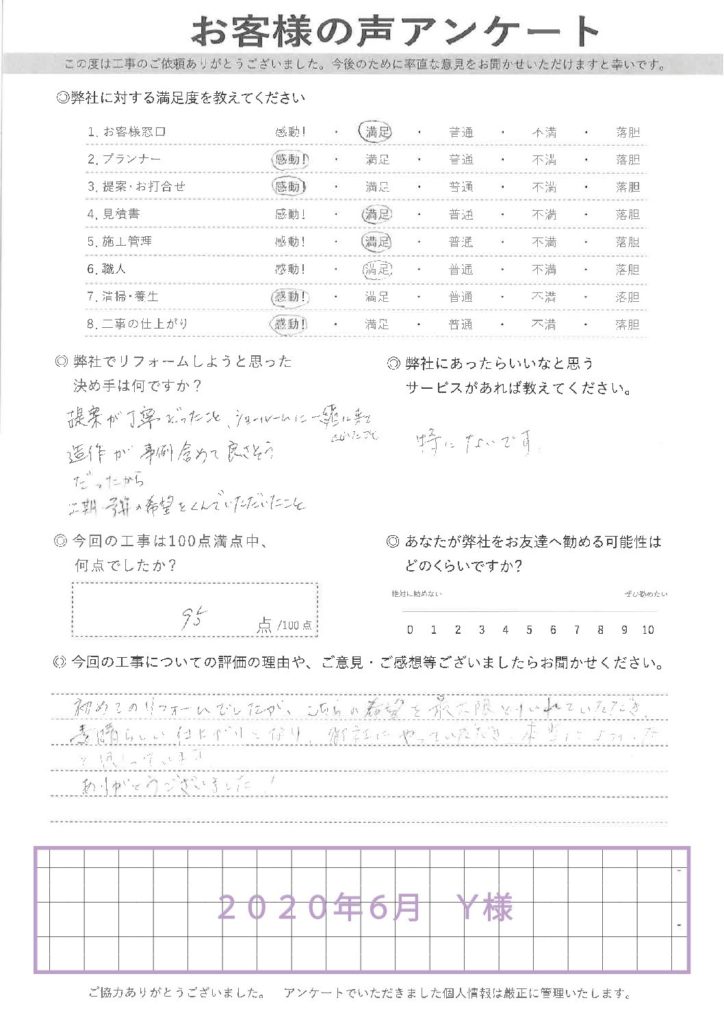 お客様の声アンケート
この度は工事のご依頼ありがとうございました。今後のために率直な意見をお聞かせいただけますと幸いです。
◎弊社に対する満足度を教えてください
1. お客様窓口 感動! ・ 満足 ・ 普通 ・ 不満 ・ 落胆
2. プランナー 感動! ・ 満足 ・ 普通 ・ 不満 ・ 落胆
3. 提案・お打合せ 感動! ・ 満足 ・ 普通 ・ 不満 ・ 落胆
4. 見積書 感動! ・ 満足 ・ 普通 ・ 不満 ・ 落胆
5. 施工管理 感動! ・ 満足 ・ 普通 ・ 不満 ・ 落胆
6. 職人 感動! ・ 満足 ・ 普通 ・ 不満 ・ 落胆
7. 清掃・養生 感動! ・ 満足 ・ 普通 ・ 不満 ・ 落胆
8. 工事の仕上がり 感動! ・ 満足 ・ 普通 ・ 不満 ・ 落胆
◎弊社でリフォームしようと思った
決め手は何ですか?
提案が丁寧だったこと、ショールームに一緒に来て
造作が事例含めて良さそう
だったから
工期・予算の希望をくんでいただいたこと
◎弊社にあったらいいなと思う
サービスがあれば教えてください。
特にないです。
◎今回の工事は100点満点中、
何点でしたか?
95 点 /100点
◎あなたが弊社をお友達へ勧める可能性は
どのくらいですか?
絶対に勧めない ぜひ勧めたい
0 1 2 3 4 5 6 7 8 9 10
◎今回の工事についての評価の理由や、ご意見・ご感想等ございましたらお聞かせください。
初めてのリフォームでしたが、こちらの希望を最大限とりいれていただき、
素晴らしい仕上がりとなり、御社にやっていただき本当によかった
と思っています。
ありがとうございました!
2020年6月 Y様
ご協力ありがとうございました。 アンケートでいただきました個人情報は厳正に管理いたします。